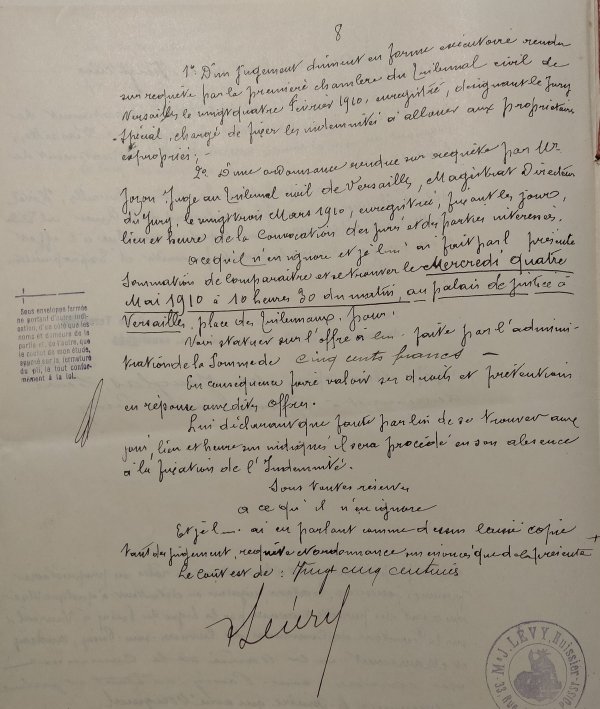 8
1º D'un Jugement dûment en forme exécutoire rendu
sur requête par la première chambre du Tribunal civil de
Versailles le vingt quatre Février 1910, enregistré, désignant le Jury
Spécial, chargé de fixer les indemnités à allouer aux propriétaires
expropriés ;-
2º D'une ordonnance rendue sur requête par Mr
Juge au Tribunal civil de Versailles, Magistrat Directeur
du Jury, le vingt trois Mars 1910, enregistrée, fixant les jours,
lieu et heure de la Convocation des jurés et des parties intéressées.
à ce qu'il n'en ignore et je lui ai fait par la présente
Sommation de comparaître et se trouver le Mercredi quatre
Mai 1910 à 10 heures 30 du matin, au palais de justice à
Versailles, place des Tribunaux, pour :
Voir statuer sur l'offre à lui faite par l'adminis-
tration de la somme de cinq cents francs —
En conséquence faire valoir ses droits et prétentions
en réponse aux dites offres.
Lui déclarant que faute par lui de se trouver aux
jour, lieu et heure sus indiqués il sera procédé en son absence
à la fixation de l'Indemnité.
Sous toutes réserves
à ce qu'il n'en ignore
Et je l— ai en parlant comme dessus laissé copie
tant des jugement, requête et ordonnance sus énoncés que de la présente +
Le coût est de : Vingt cinq centimes
Sous enveloppe fermée
ne portant d'autre indi-
cation, d'un côté que les
noms et demeure de la
partie et, de l'autre, que
le cachet de mon étude,
apposé sur la fermeture
du pli, le tout confor-
mément à la loi.
Me J. LÉVY, Huissier
33, Rue
POISSY